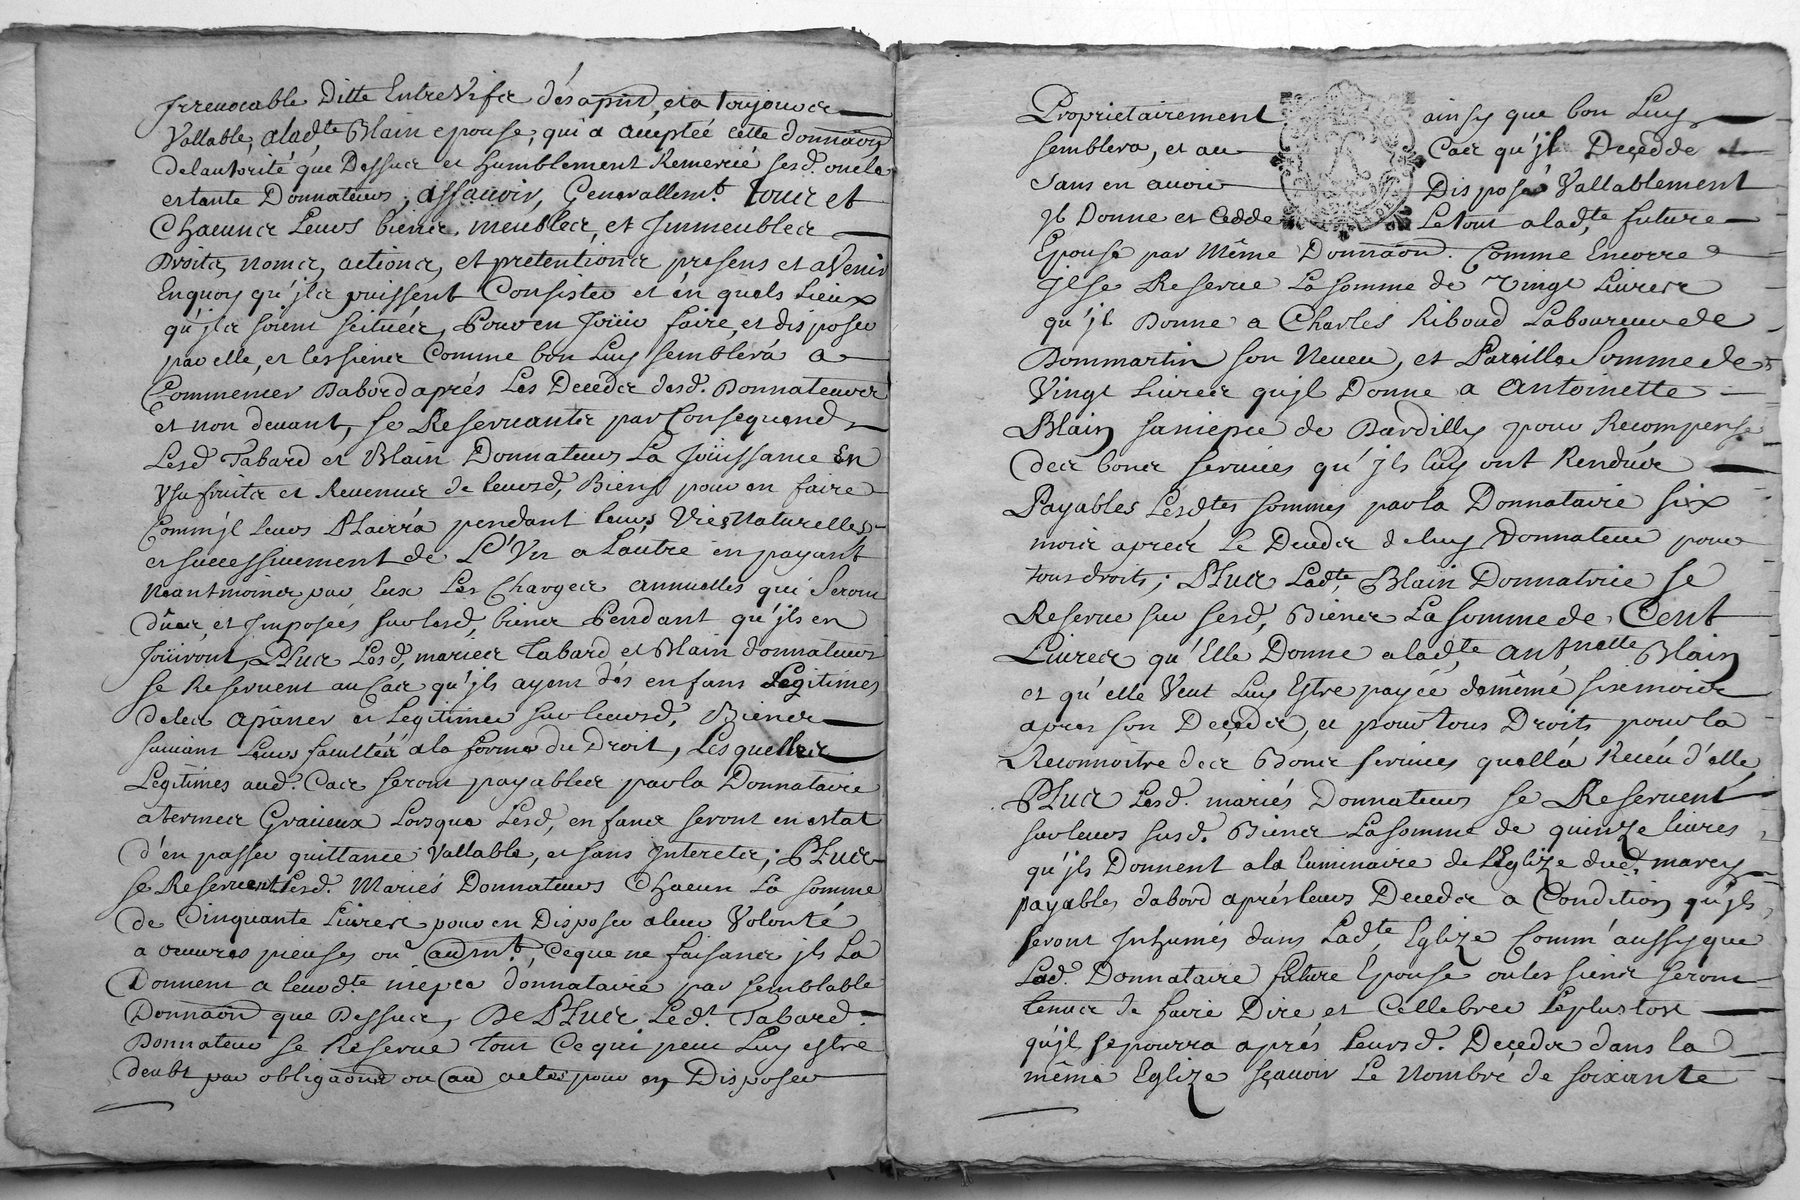 Irrevocable Ditte Entre Vifs dés aprnt, et a toujours
Vallable, a lad,te Blain epouse, qui a aceptéé cette donnaõn
de l'autorité que Dessus et humblement Remercié sesd. oncle
et tante Donnateurs, assavoir, Generallemt. tous et
Chacuns Leurs biens, meubles, et Jmmeubles
Droits, noms, actions, et pretentions presens et avenir
Enquoy qu'jls puissent Consister et én quels Lieux
qu'jls soient scitués, Pour en Joüir faire, et disposer
par elle, et les siens Comme bon Luy semblera a
Commencer Dabord aprés Les Deceds desd. Donnateurs
et non devant, se Reservants par Consequend
Lesd Tabard et Blain Donnateurs La Joüissance En
Usufruits et Revenus de leursd, Biens pour en faire
Comm'jl leurs Plairra pendant leurs Vies Naturelles
et successivement de L'Un a L'autre en payant
Néantmoins par Eux Les Charges annuelles qui Seront
dûes, et Jmposées sur lesd, biens Pendant qu'jls en
Joüiront, Plus Lesd, mariés Tabard et Blain donnateurs
se Reservent au Cas qu'jls ayent dés enfans Legitimes
de les apâner et Legitimer sur leursd, Biens
suivant Leurs facultéz a la forme du Droit, Lesquelles
Legitimes aud. Cas seront payables par la Donnataire
a termes Gracieux Lorsque Lesd, enfans seront en estat
d'en passer quittance Vallable, et sans Interets; Plus
se Reservent Lesd. Mariés Donnateurs Chacun La somme
de Cinquante Livres pour en Disposer a leur Volonté
a oeuvres pieuses ou autrmt., Ce que ne faisants jls La
Donnent a leurd,te niepce donnataire par semblable
Donnaõn que Dessus, De Plus Led.t Tabard
Donnateur se Reserve tout Ce qui peut Luy estre
deubt par obligaõns ou au actes pour en Disposer
Proprietairement ainsy que bon Luy
semblera, et au Cas qu'jl Deçedde
sans en avoir Disposé Vallablement
jl Donne et Cedde Le tout a lad,te future
Epouse par Même Donnaõn. Comme Encorre
jl se Reserve La somme de Vingt Livres
qu'jl Donne a Charles Riboud Laboureur de
Dommartin son Neveu, et Pareille Somme de
Vingt Livres qu'jl Donne a Antoinette
Blain sa niepce de Dardilly pour Recompense
des bons services qu'jls luy ont Rendües
Payables Lesd,tes sommes par la Donnataire six
mois apres Le Deceds de luy Donnateur pour
tous droits; Plus Lad,te Blain Donnatrice se
Reserve sur sesd, Biens La somme de Cent
Livres qu'Elle Donne a lad,te antnette Blain
et qu'elle Veut Luy Estre payée de même six mois
apres son Deçeds, et pour tous Droits pour la
Reconnoitre des Bons services quella Receu d'elle
Plus Lesd. mariés Donnateurs se Reservent
sur leurs susd. Biens La somme de quinze livres
qu'jls Donnent a la luminaire de L'Eglize dud. marcy
payables dabord aprés leurs Deceds a Condition qu'jls
seront Inhumés dans Lad,te Eglize Comm'aussy que
Lad. Donnataire future Epouse ou les siens seront
tenus de faire Dire et Cellebrer Le plustost
qu'jl se pourra aprés Leursd. Deçeds dans la
même Eglize sçavoir Le Nombre de soixante